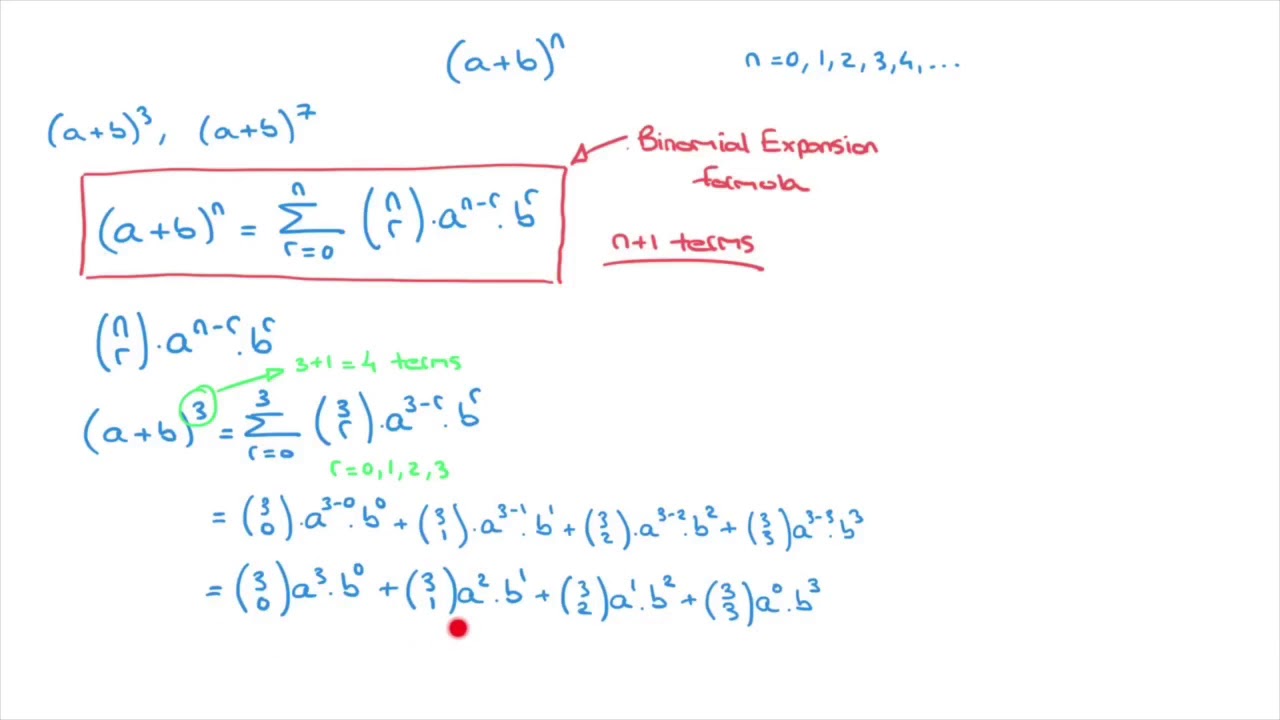 (a+b)ⁿ n=0, 1, 2, 3, 4, ...
(a+b)³, (a+b)⁷
Binomial Expansion
formula
(a+b)ⁿ = ∑_{r=0}^{n} (n r)·a^{n-r}.b^r
n+1 terms
(n r)·a^{n-r}.b^r
3+1=4 terms
(a+b)³ = ∑_{r=0}^{3} (3 r)·a^{3-r}.b^r
r=0,1,2,3
= (3 0)·a^{3-0}.b⁰ + (3 1)·a^{3-1}.b¹ + (3 2)·a^{3-2}.b² + (3 3)a^{3-3}.b³
= (3 0)a³.b⁰ + (3 1)a².b¹ + (3 2)a¹.b² + (3 3)a⁰.b³